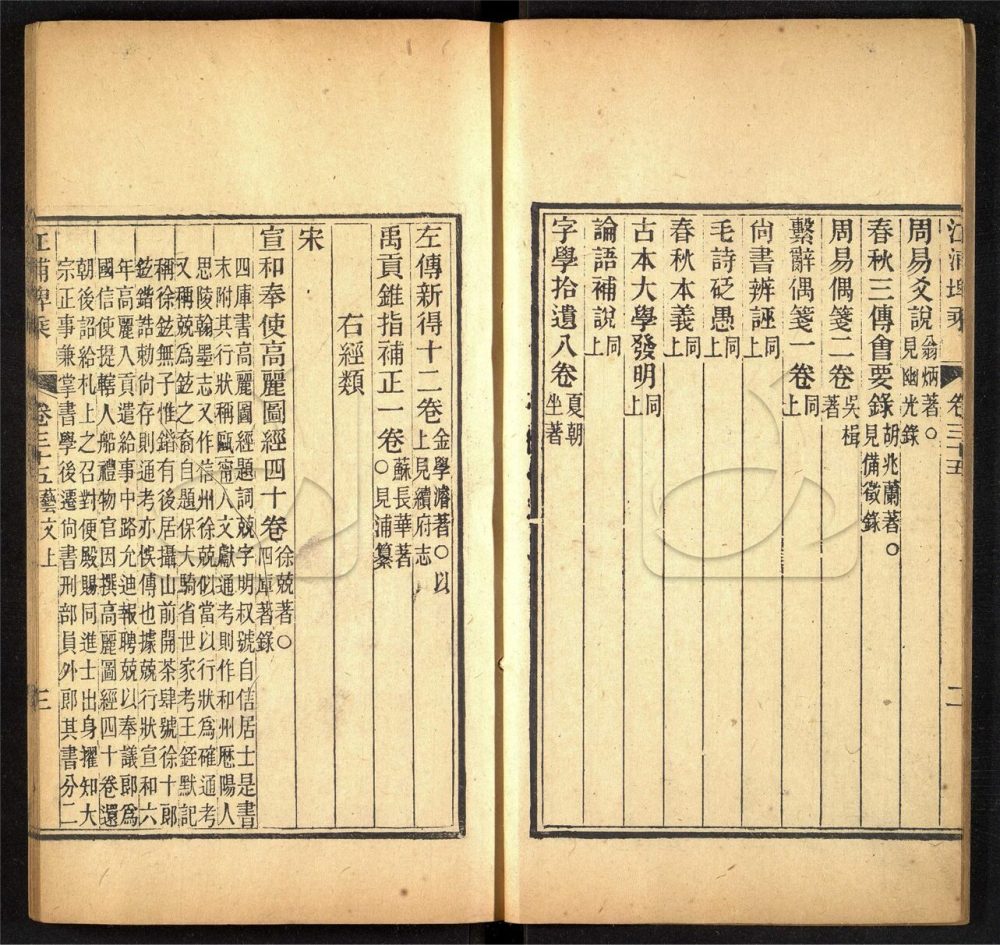 江浦埤乘 卷三十五 二
周易爻説翁炳著○見幽光錄
春秋三傳會要錄胡兆蘭著○見備徵錄
周易偶箋二卷吳楫著
繫辭偶箋一卷同上
尙書辨誣同上
毛詩砭愚同上
春秋本義同上
古本大學發明同上
論語補説同上
字學拾遺八卷夏朝坐著
左傳新得十二卷金學濬著○以上見續府志
禹貢錐指補正一卷蘇長華著○見浦纂
右經類
宋
宣和奉使高麗圖經四十卷徐兢著○四庫著錄
四庫書高麗圖經題詞兢字明叔號自信居士是書
末附其行狀稱甌甯人文獻通考則作和州歷陽人
思陵翰墨志又作信州徐兢似當以行狀爲確通考
又稱兢爲鉉之裔自題保大騎省世家考王銍默記
稱徐鉉無子惟鍇有後居攝山前開茶肆號徐十郎
鉉鍇誥敕尙存則通考亦悞傳也據兢行狀宣和六
年高麗入貢遣給事中路允迪報聘兢以奉議郎爲
國信使提轄人船禮物官因撰高麗圖經四十卷還
朝後詔給札上之召對便殿賜同進士出身擢知大
宗正事兼掌書學後遷尙書刑部員外郎其書分二
江浦埤乘 卷三十五 藝文上 三